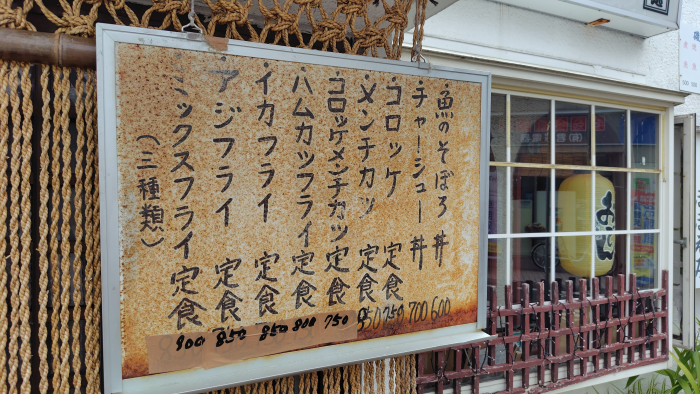 ・魚のそぼろ丼 600
・チャーシュー丼 700
・コロッケ 定食 750
・メンチカツ 定食 850
・コロッケメンチカツ 定食 750
・ハムカツフライ 定食 800
・イカフライ 定食 850
・アジフライ 定食 850
ミックスフライ 定食 900
(三種類)
おでん